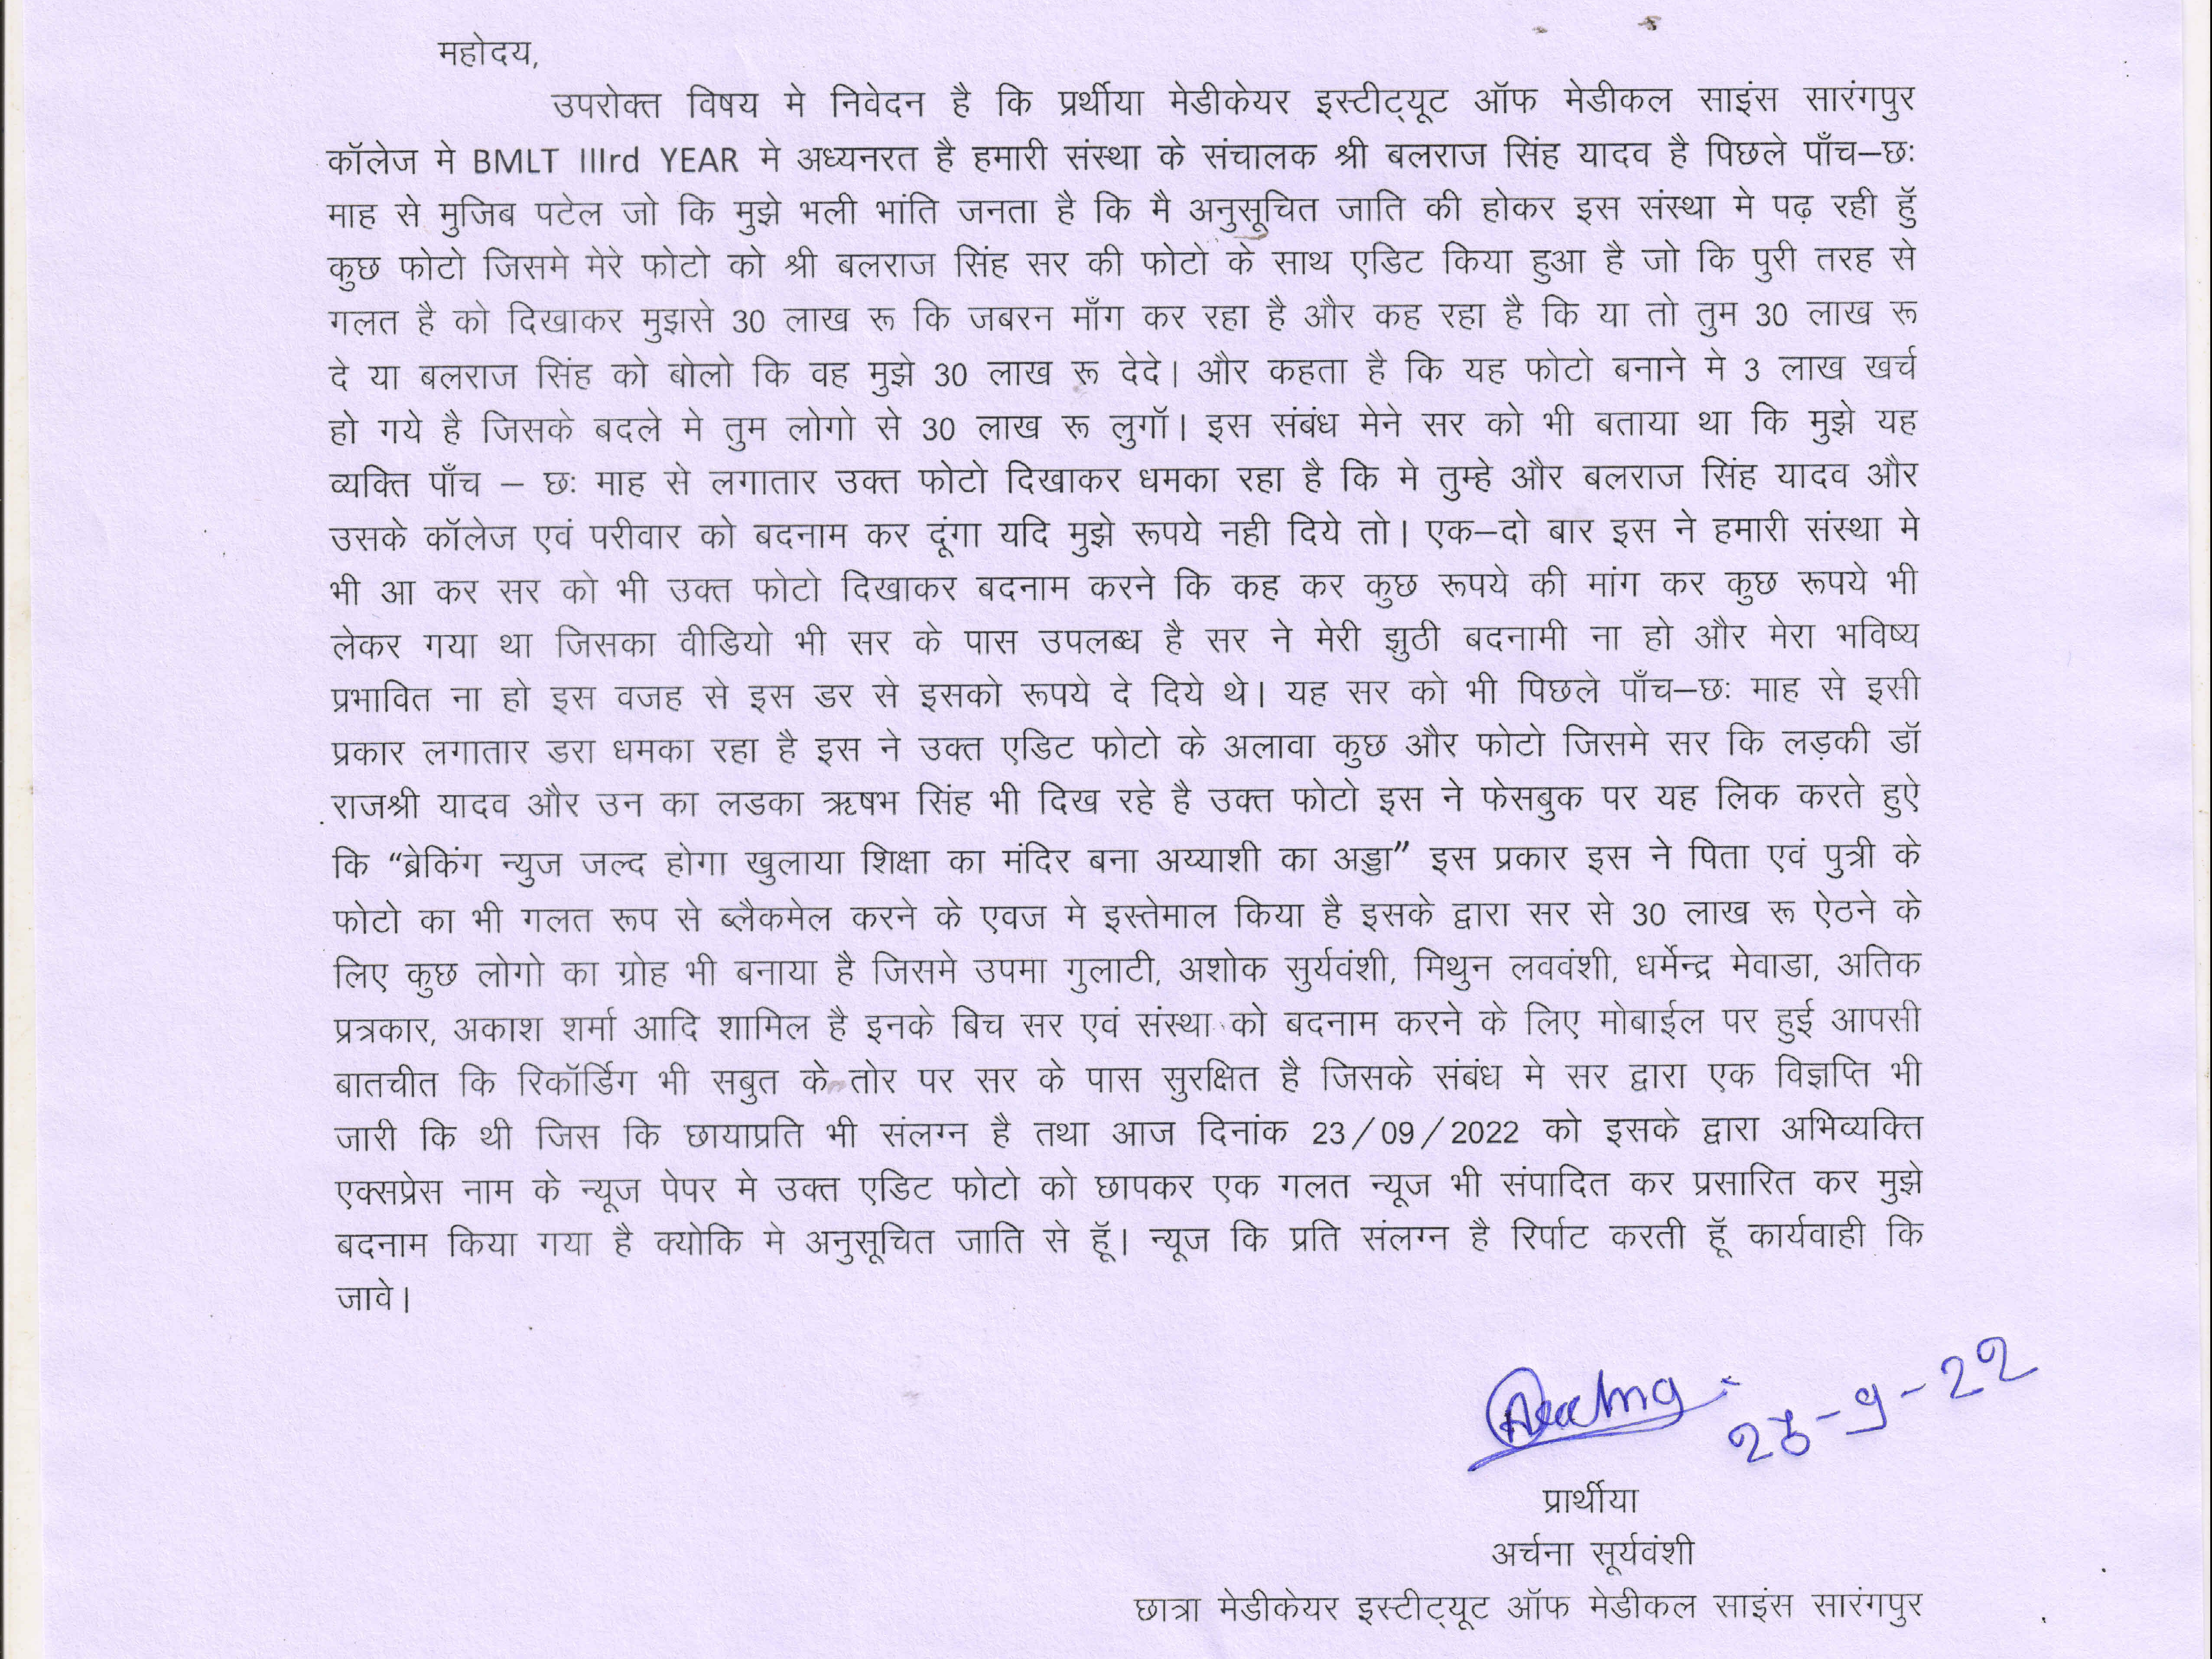 महोदय,
उपरोक्त विषय मे निवेदन है कि प्रर्थीया मेडीकेयर इस्टीट्यूट ऑफ मेडीकल साइंस सारंगपुर
कॉलेज मे BMLT IIIrd YEAR मे अध्यनरत है हमारी संस्था के संचालक श्री बलराज सिंह यादव है पिछले पाँच–छः
माह से मुजिब पटेल जो कि मुझे भली भांति जनता है कि मै अनुसूचित जाति की होकर इस संस्था मे पढ़ रही हुॅ
कुछ फोटो जिसमे मेरे फोटो को श्री बलराज सिंह सर की फोटो के साथ एडिट किया हुआ है जो कि पुरी तरह से
गलत है को दिखाकर मुझसे 30 लाख रू कि जबरन माँग कर रहा है और कह रहा है कि या तो तुम 30 लाख रू
दे या बलराज सिंह को बोलो कि वह मुझे 30 लाख रू देदे। और कहता है कि यह फोटो बनाने मे 3 लाख खर्च
हो गये है जिसके बदले मे तुम लोगो से 30 लाख रू लुगॉ। इस संबंध मेने सर को भी बताया था कि मुझे यह
व्यक्ति पाँच – छः माह से लगातार उक्त फोटो दिखाकर धमका रहा है कि मे तुम्हे और बलराज सिंह यादव और
उसके कॉलेज एवं परीवार को बदनाम कर दूंगा यदि मुझे रूपये नही दिये तो। एक–दो बार इस ने हमारी संस्था मे
भी आ कर सर को भी उक्त फोटो दिखाकर बदनाम करने कि कह कर कुछ रूपये की मांग कर कुछ रूपये भी
लेकर गया था जिसका वीडियो भी सर के पास उपलब्ध है सर ने मेरी झुठी बदनामी ना हो और मेरा भविष्य
प्रभावित ना हो इस वजह से इस डर से इसको रूपये दे दिये थे। यह सर को भी पिछले पाँच–छः माह से इसी
प्रकार लगातार डरा धमका रहा है इस ने उक्त एडिट फोटो के अलावा कुछ और फोटो जिसमे सर कि लड़की डॉ
राजश्री यादव और उन का लडका ऋषभ सिंह भी दिख रहे है उक्त फोटो इस ने फेसबुक पर यह लिक करते हुऐ
कि “ब्रेकिंग न्युज जल्द होगा खुलाया शिक्षा का मंदिर बना अय्याशी का अड्डा” इस प्रकार इस ने पिता एवं पुत्री के
फोटो का भी गलत रूप से ब्लैकमेल करने के एवज मे इस्तेमाल किया है इसके द्वारा सर से 30 लाख रू ऐठने के
लिए कुछ लोगो का ग्रोह भी बनाया है जिसमे उपमा गुलाटी, अशोक सुर्यवंशी, मिथुन लववंशी, धर्मेन्द्र मेवाडा, अतिक
प्रत्रकार, अकाश शर्मा आदि शामिल है इनके बिच सर एवं संस्था को बदनाम करने के लिए मोबाईल पर हुई आपसी
बातचीत कि रिकॉर्डिग भी सबुत के तोर पर सर के पास सुरक्षित है जिसके संबंध मे सर द्वारा एक विज्ञप्ति भी
जारी कि थी जिस कि छायाप्रति भी संलग्न है तथा आज दिनांक 23/09/2022 को इसके द्वारा अभिव्यक्ति
एक्सप्रेस नाम के न्यूज पेपर मे उक्त एडिट फोटो को छापकर एक गलत न्यूज भी संपादित कर प्रसारित कर मुझे
बदनाम किया गया है क्योकि मे अनुसूचित जाति से हूॅ। न्यूज कि प्रति संलग्न है रिर्पाट करती हूॅ कार्यवाही कि
जावे।
प्रार्थीया
अर्चना सूर्यवंशी
छात्रा मेडीकेयर इस्टीट्यूट ऑफ मेडीकल साइंस सारंगपुर